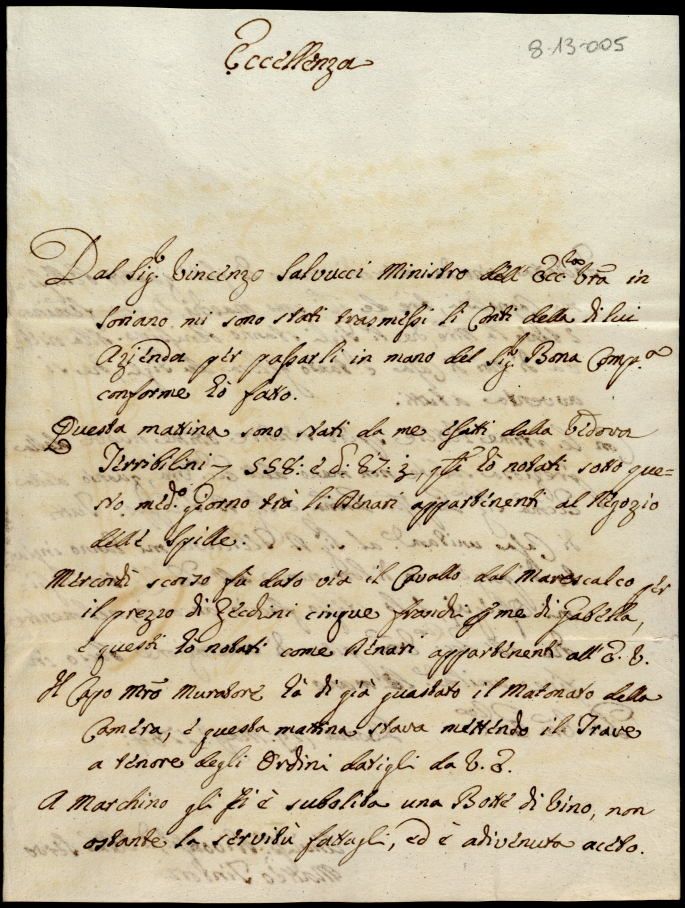 8-13-005
Eccellenza
Dal Sig.r Vincenzo Salvucci Ministro dell' Ecc.za Vra in
Soriano mi sono stati trasmessi li Conti della di lui
Azienda per passarli in mano del Sig.r Bona Comp.a
conforme hò fatto.
Questa mattina sono stati da me esatti dalla Vedova
Terribilini 558: e d: 87: ½, q.sti hò notati sotto que=
sto med.o giorno trà li Denari appartenenti al Negozio
delle Spille.
Mercordì scorso fù dato via il Cavallo dal Marescalco per
il prezzo di Zecchini cinque franchi p me di Gabella,
e questi hò notati come Denari appartenenti all' E. V.
Il Capo Mrõ Muratore hà di già guastato il Matonato della
Camera, e questa mattina stava mettendo il Trave
a tenore degli Ordini datigli da V. E.
A Marchino gli si è subolita una Botte di Vino, non
ostante la servitù fattagli, ed è adivenuta aceto.